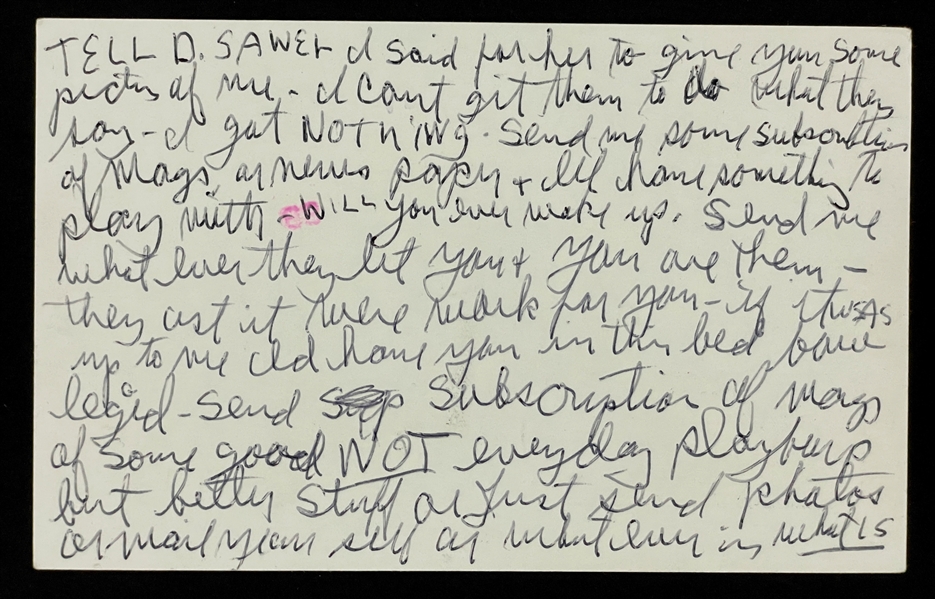 TELL D. SAWEL I said for her to give you some
picts of me - I cant git them to do what they
say - I got NOTHING. Send my some subscrition
of Mags, or news paper + Ill have something to
play with - WILL you ever wake up. Send me
what ever they let you + you are them -
they act it were work for you - if it WSAS
up to me Id have you in this bed bow
leg'd - Send Subscription of mags
of some good NOT everyday playboys
but better stuff or just send photos
or mail your self or what ever is what IS